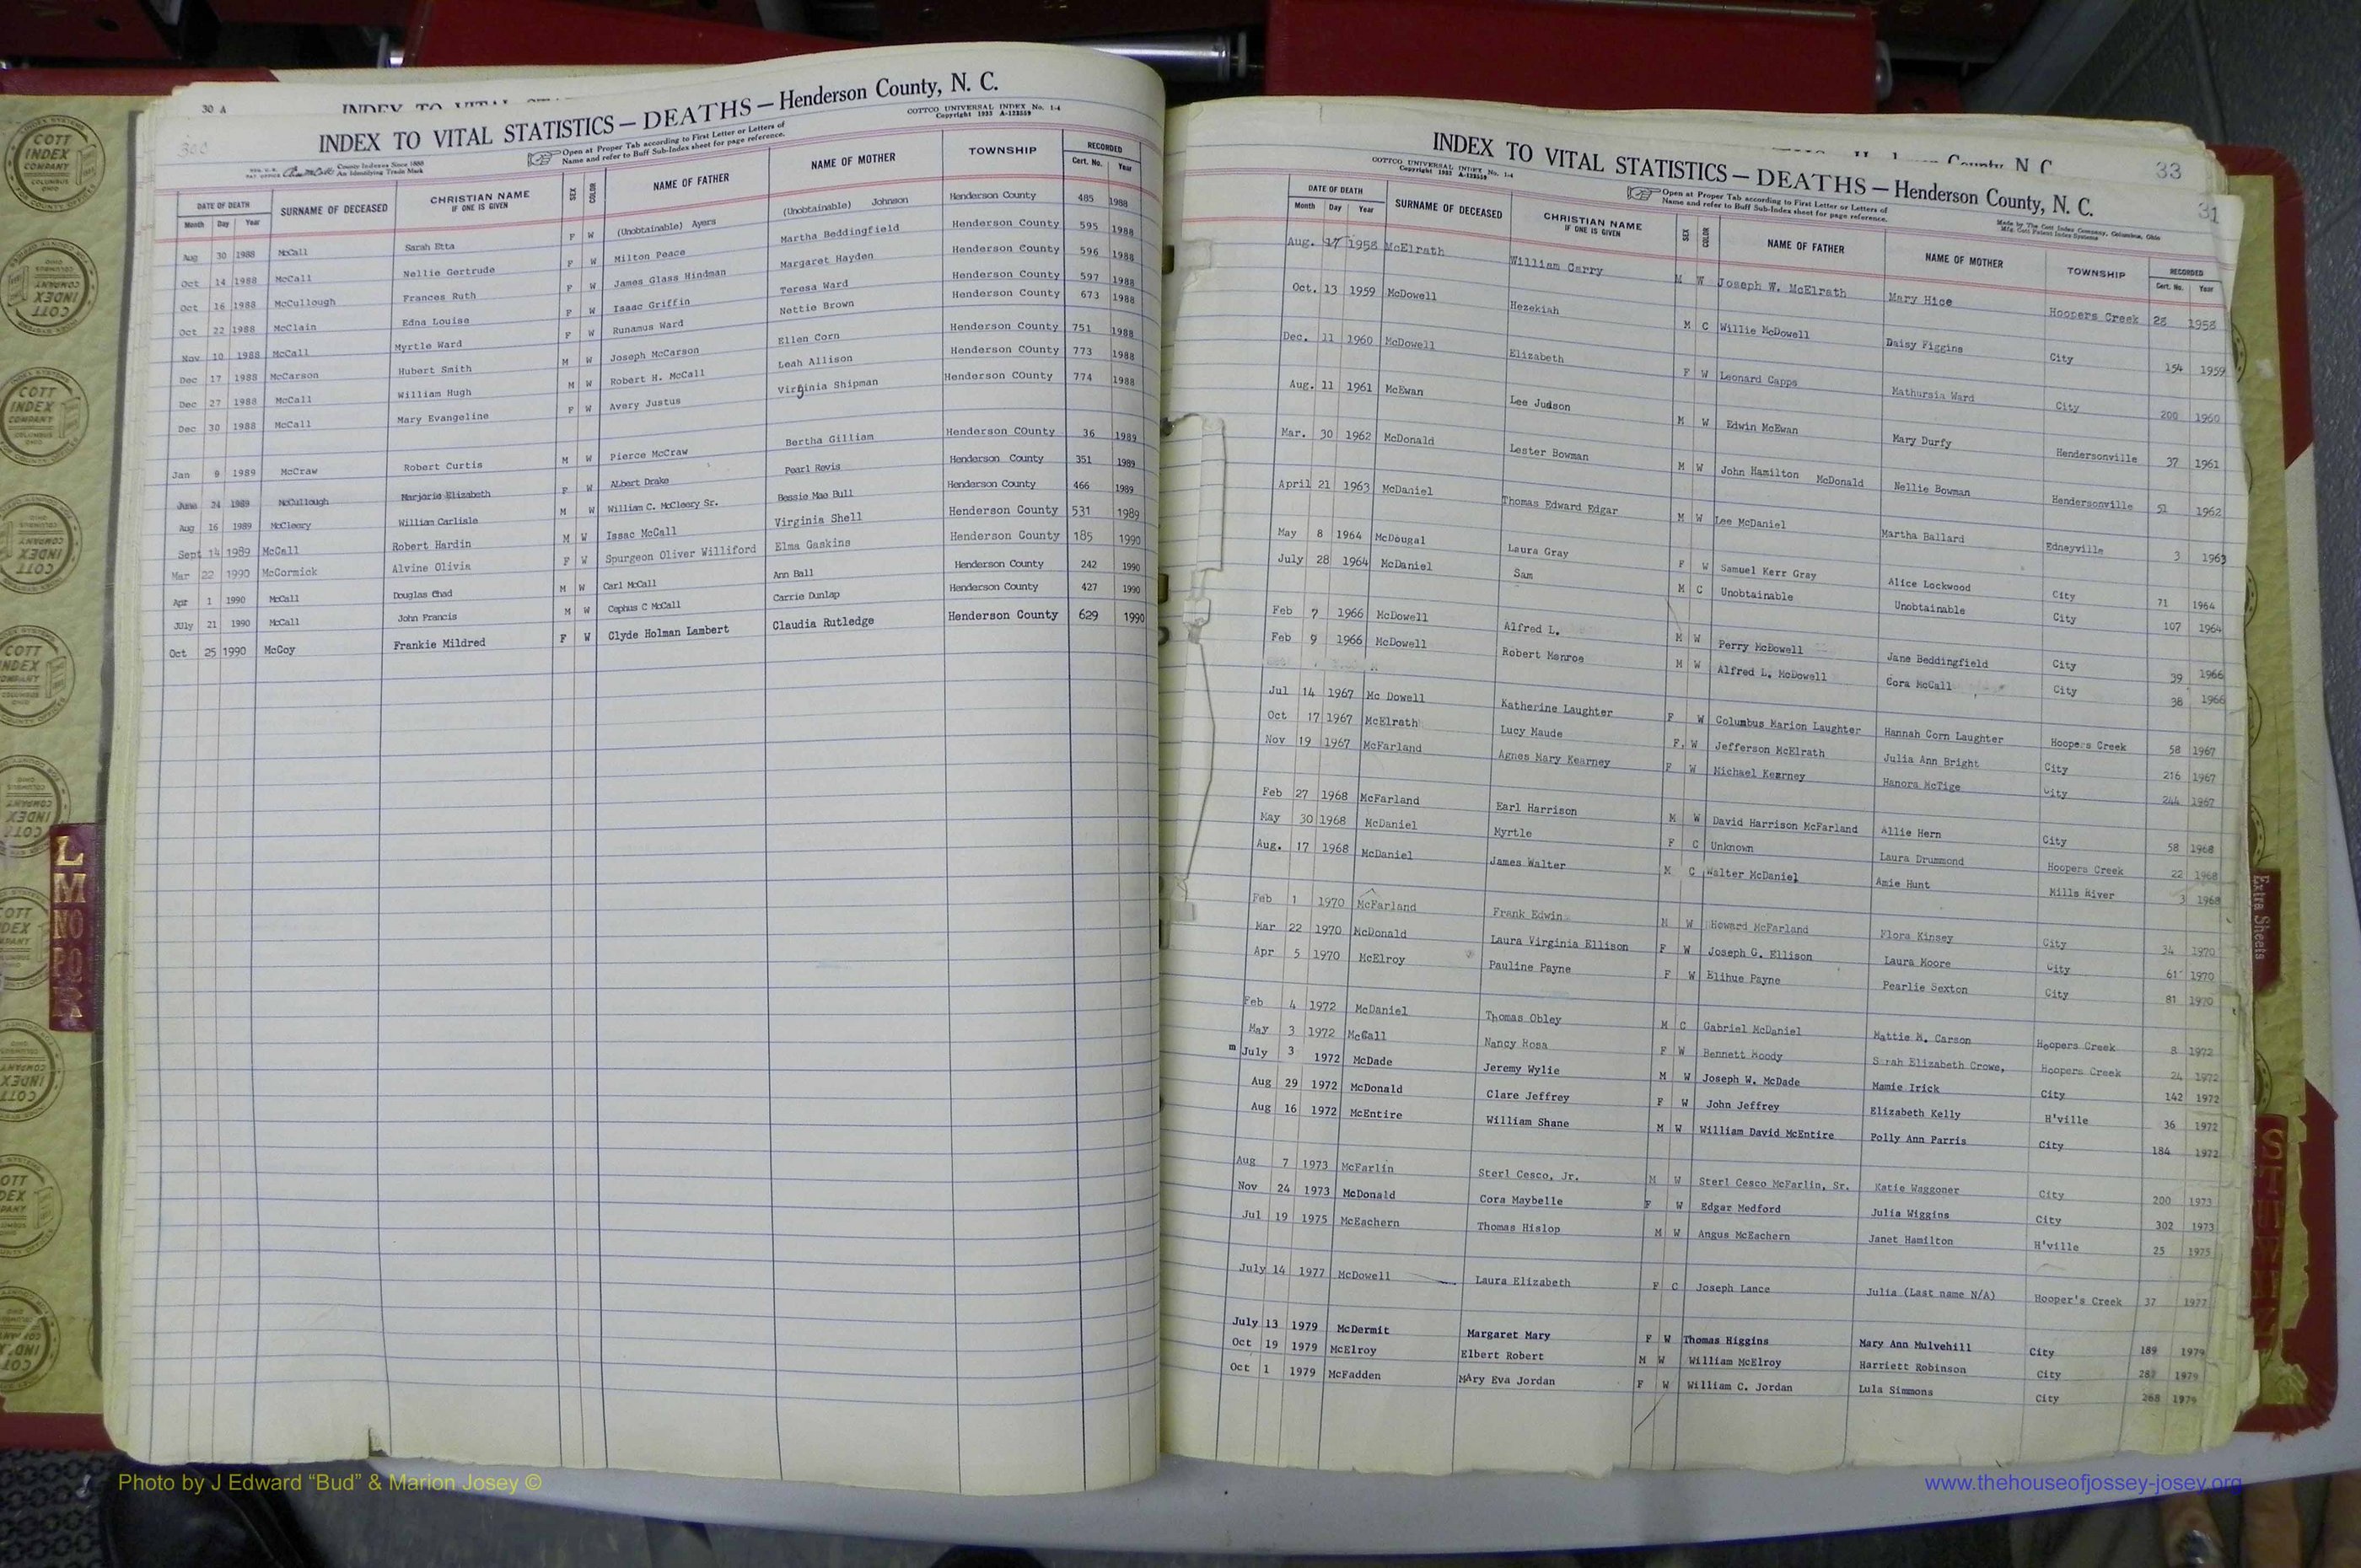 30 A
INDEX TO VITAL STATISTICS — DEATHS — Henderson County, N. C.
COTTCO UNIVERSAL INDEX No. 1-4
Copyright 1935 A-122559
Open at Proper Tab according to First Letter or Letters of
Name and refer to Buff Sub-Index sheet for page reference.
County Indexes Since 1888
An Identifying Trade Mark
DATE OF DEATH SURNAME OF DECEASED CHRISTIAN NAME IF ONE IS GIVEN SEX COLOR NAME OF FATHER NAME OF MOTHER TOWNSHIP RECORDED
Month Day Year Cert. No. Year
Aug 30 1988 McCall Sarah Etta F W (Unobtainable) Ayers (Unobtainable) Johnson Henderson County 485 1988
Oct 14 1988 McCall Nellie Gertrude F W Milton Peace Martha Beddingfield Henderson County 595 1988
Oct 16 1988 McCullough Frances Ruth F W James Glass Hindman Margaret Hayden Henderson County 596 1988
Oct 22 1988 McClain Edna Louise F W Isaac Griffin Teresa Ward Henderson County 597 1988
Nov 10 1988 McCall Myrtle Ward F W Runamus Ward Nettie Brown Henderson County 673 1988
Dec 17 1988 McCarson Hubert Smith M W Joseph McCarson Ellen Corn Henderson COunty 751 1988
Dec 27 1988 McCall William Hugh M W Robert H. McCall Leah Allison Henderson COunty 773 1988
Dec 30 1988 McCall Mary Evangeline F W Avery Justus Virginia Shipman Henderson COunty 774 1988
Jan 9 1989 McCraw Robert Curtis M W Pierce McCraw Bertha Gilliam Henderson COunty 36 1989
June 24 1989 McCullough Marjorie Elizabeth F W Albert Drake Pearl Revis Henderson County 351 1989
Aug 16 1989 McCleery William Carlisle M W William C. McCleery Sr. Bessie Mae Bull Henderson County 466 1989
Sept 14 1989 McCall Robert Hardin M W Issac McCall Virginia Shell Henderson County 531 1989
Mar 22 1990 McCormick Alvine Olivia F W Spurgeon Oliver Williford Elma Gaskins Henderson County 185 1990
Apr 1 1990 McCall Douglas Chad M W Carl McCall Ann Ball Henderson County 242 1990
July 21 1990 McCall John Francis M W Cephus C McCall Carrie Dunlap Henderson County 427 1990
Oct 25 1990 McCoy Frankie Mildred F W Clyde Holman Lambert Claudia Rutledge Henderson County 629 1990
33
31
INDEX TO VITAL STATISTICS — DEATHS — Henderson County, N. C.
COTTCO UNIVERSAL INDEX No. 1-4
Open at Proper Tab according to First Letter or Letters of
Name and refer to Buff Sub-Index sheet for page reference.
Made by The Cott Index Company, Columbus, Ohio
DATE OF DEATH SURNAME OF DECEASED CHRISTIAN NAME IF ONE IS GIVEN SEX COLOR NAME OF FATHER NAME OF MOTHER TOWNSHIP RECORDED
Month Day Year Cert. No. Year
Aug. 17 1958 McElrath William Carry M W Joseph W. McElrath Mary Hice Hoopers Creek 28 1958
Oct. 13 1959 McDowell Hezekiah M C Willie McDowell Daisy Figgins City 154 1959
Dec. 11 1960 McDowell Elizabeth F W Leonard Capps Mathursia Ward City 200 1960
Aug. 11 1961 McEwan Lee Judson M W Edwin McEwan Mary Durfy Hendersonville 37 1961
Mar. 30 1962 McDonald Lester Bowman M W John Hamilton McDonald Nellie Bowman Hendersonville 51 1962
April 21 1963 McDaniel Thomas Edward Edgar M W Lee McDaniel Martha Ballard Edneyville 3 1963
May 8 1964 McDougal Laura Gray F W Samuel Kerr Gray Alice Lockwood City 71 1964
July 28 1964 McDaniel Sam M C Unobtainable Unobtainable City 107 1964
Feb 7 1966 McDowell Alfred L. M W Perry McDowell Jane Beddingfield City 39 1966
Feb 9 1966 McDowell Robert Monroe M W Alfred L. McDowell Cora McCall City 38 1966
Jul 14 1967 Mc Dowell Katherine Laughter F W Columbus Marion Laughter Hannah Corn Laughter Hoopers Creek 58 1967
Oct 17 1967 McElrath Lucy Maude F. W Jefferson McElrath Julia Ann Bright City 216 1967
Nov 19 1967 McFarland Agnes Mary Kearney F W Michael Kearney Hanora McTige City 244 1967
Feb 27 1968 McFarland Earl Harrison M W David Harrison McFarland Allie Hern City 58 1968
May 30 1968 McDaniel Myrtle F C Unknown Laura Drummond Hoopers Creek 22 1968
Aug. 17 1968 McDaniel James Walter M C Walter McDaniel Amie Hunt Mills River 3 1968
Feb 1 1970 McFarland Frank Edwin M W Howard McFarland Flora Kinsey City 34 1970
Mar 22 1970 McDonald Laura Virginia Ellison F W Joseph G. Ellison Laura Moore City 61 1970
Apr 5 1970 McElroy Pauline Payne F W Elihue Payne Pearlie Sexton City 81 1970
Feb 4 1972 McDaniel Thomas Obley M C Gabriel McDaniel Mattie M. Carson Hoopers Creek 8 1972
May 3 1972 McCall Nancy Rosa F W Bennett Moody Sarah Elizabeth Crowe, Hoopers Creek 24 1972
m July 3 1972 McDade Jeremy Wylie M W Joseph W. McDade Mamie Irick City 142 1972
Aug 29 1972 McDonald Clare Jeffrey F W John Jeffrey Elizabeth Kelly H'ville 36 1972
Aug 16 1972 McEntire William Shane M W William David McEntire Polly Ann Parris City 184 1972
Aug 7 1973 McFarlin Sterl Cesco, Jr. M W Sterl Cesco McFarlin, Sr. Katie Waggoner City 200 1973
Nov 24 1973 McDonald Cora Maybelle F W Edgar Medford Julia Wiggins City 302 1973
Jul 19 1975 McEachern Thomas Hislop M W Angus McEachern Janet Hamilton H'ville 25 1975
July 14 1977 McDowell Laura Elizabeth F C Joseph Lance Julia (Last name N/A) Hooper's Creek 37 1977
July 13 1979 McDermit Margaret Mary F W Thomas Higgins Mary Ann Mulvehill City 189 1979
Oct 19 1979 McElroy Elbert Robert M W William McElroy Harriett Robinson City 1979
Oct 1 1979 McFadden MAry Eva Jordan F W William C. Jordan Lula Simmons City 268 1979
L
M
NO
PQ
R
Extra Sheets
Photo by J Edward “Bud” & Marion Josey ©
www.thehouseofjossey-josey.org